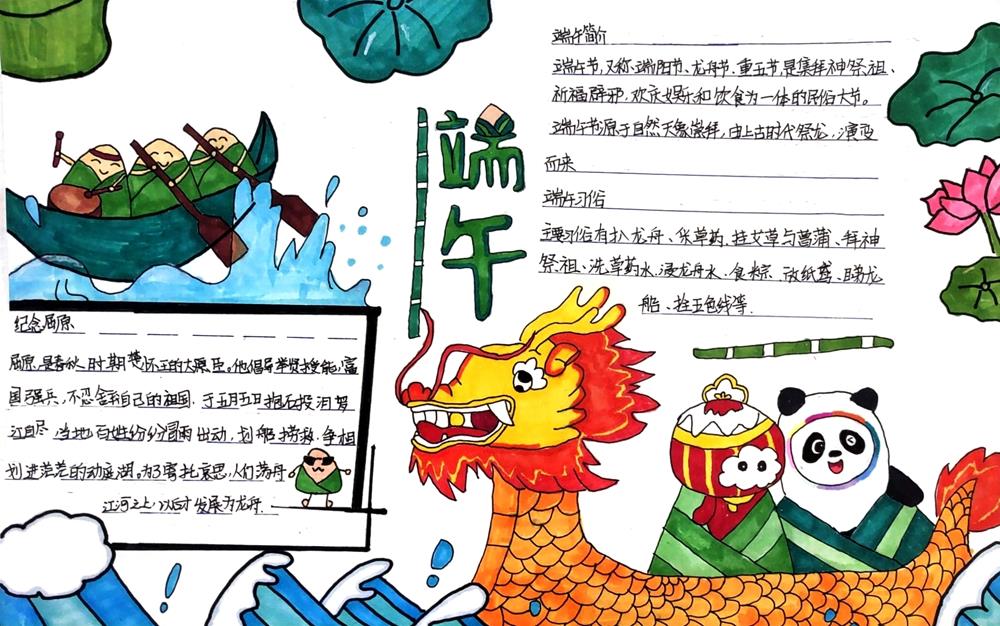 端午
端午简介
端午节,又称端阳节、龙舟节、重五节,是集拜神祭祖、
祈福辟邪,欢庆娱乐和饮食为一体的民俗大节。
端午节原于自然天象崇拜,由上古时代祭龙、演变
而来
端午习俗
主要习俗有扒龙舟、采草药、挂艾草与菖蒲、拜神
祭祖、洗草药水、浸龙舟水、食粽、放纸鸢、睇龙
船、拴五色线等.
纪念屈原
屈原,是春秋时期楚怀王的大臣。他倡导举贤授能,富
国强兵,不忍舍弃自己的祖国,于五月五日抱石投汨罗
江自尽,当地百姓纷纷出动,划船捞救,争相
划进茫茫的动庭湖。为了寄托哀思,人们荡舟
江河之上,以后才发展为龙舟.